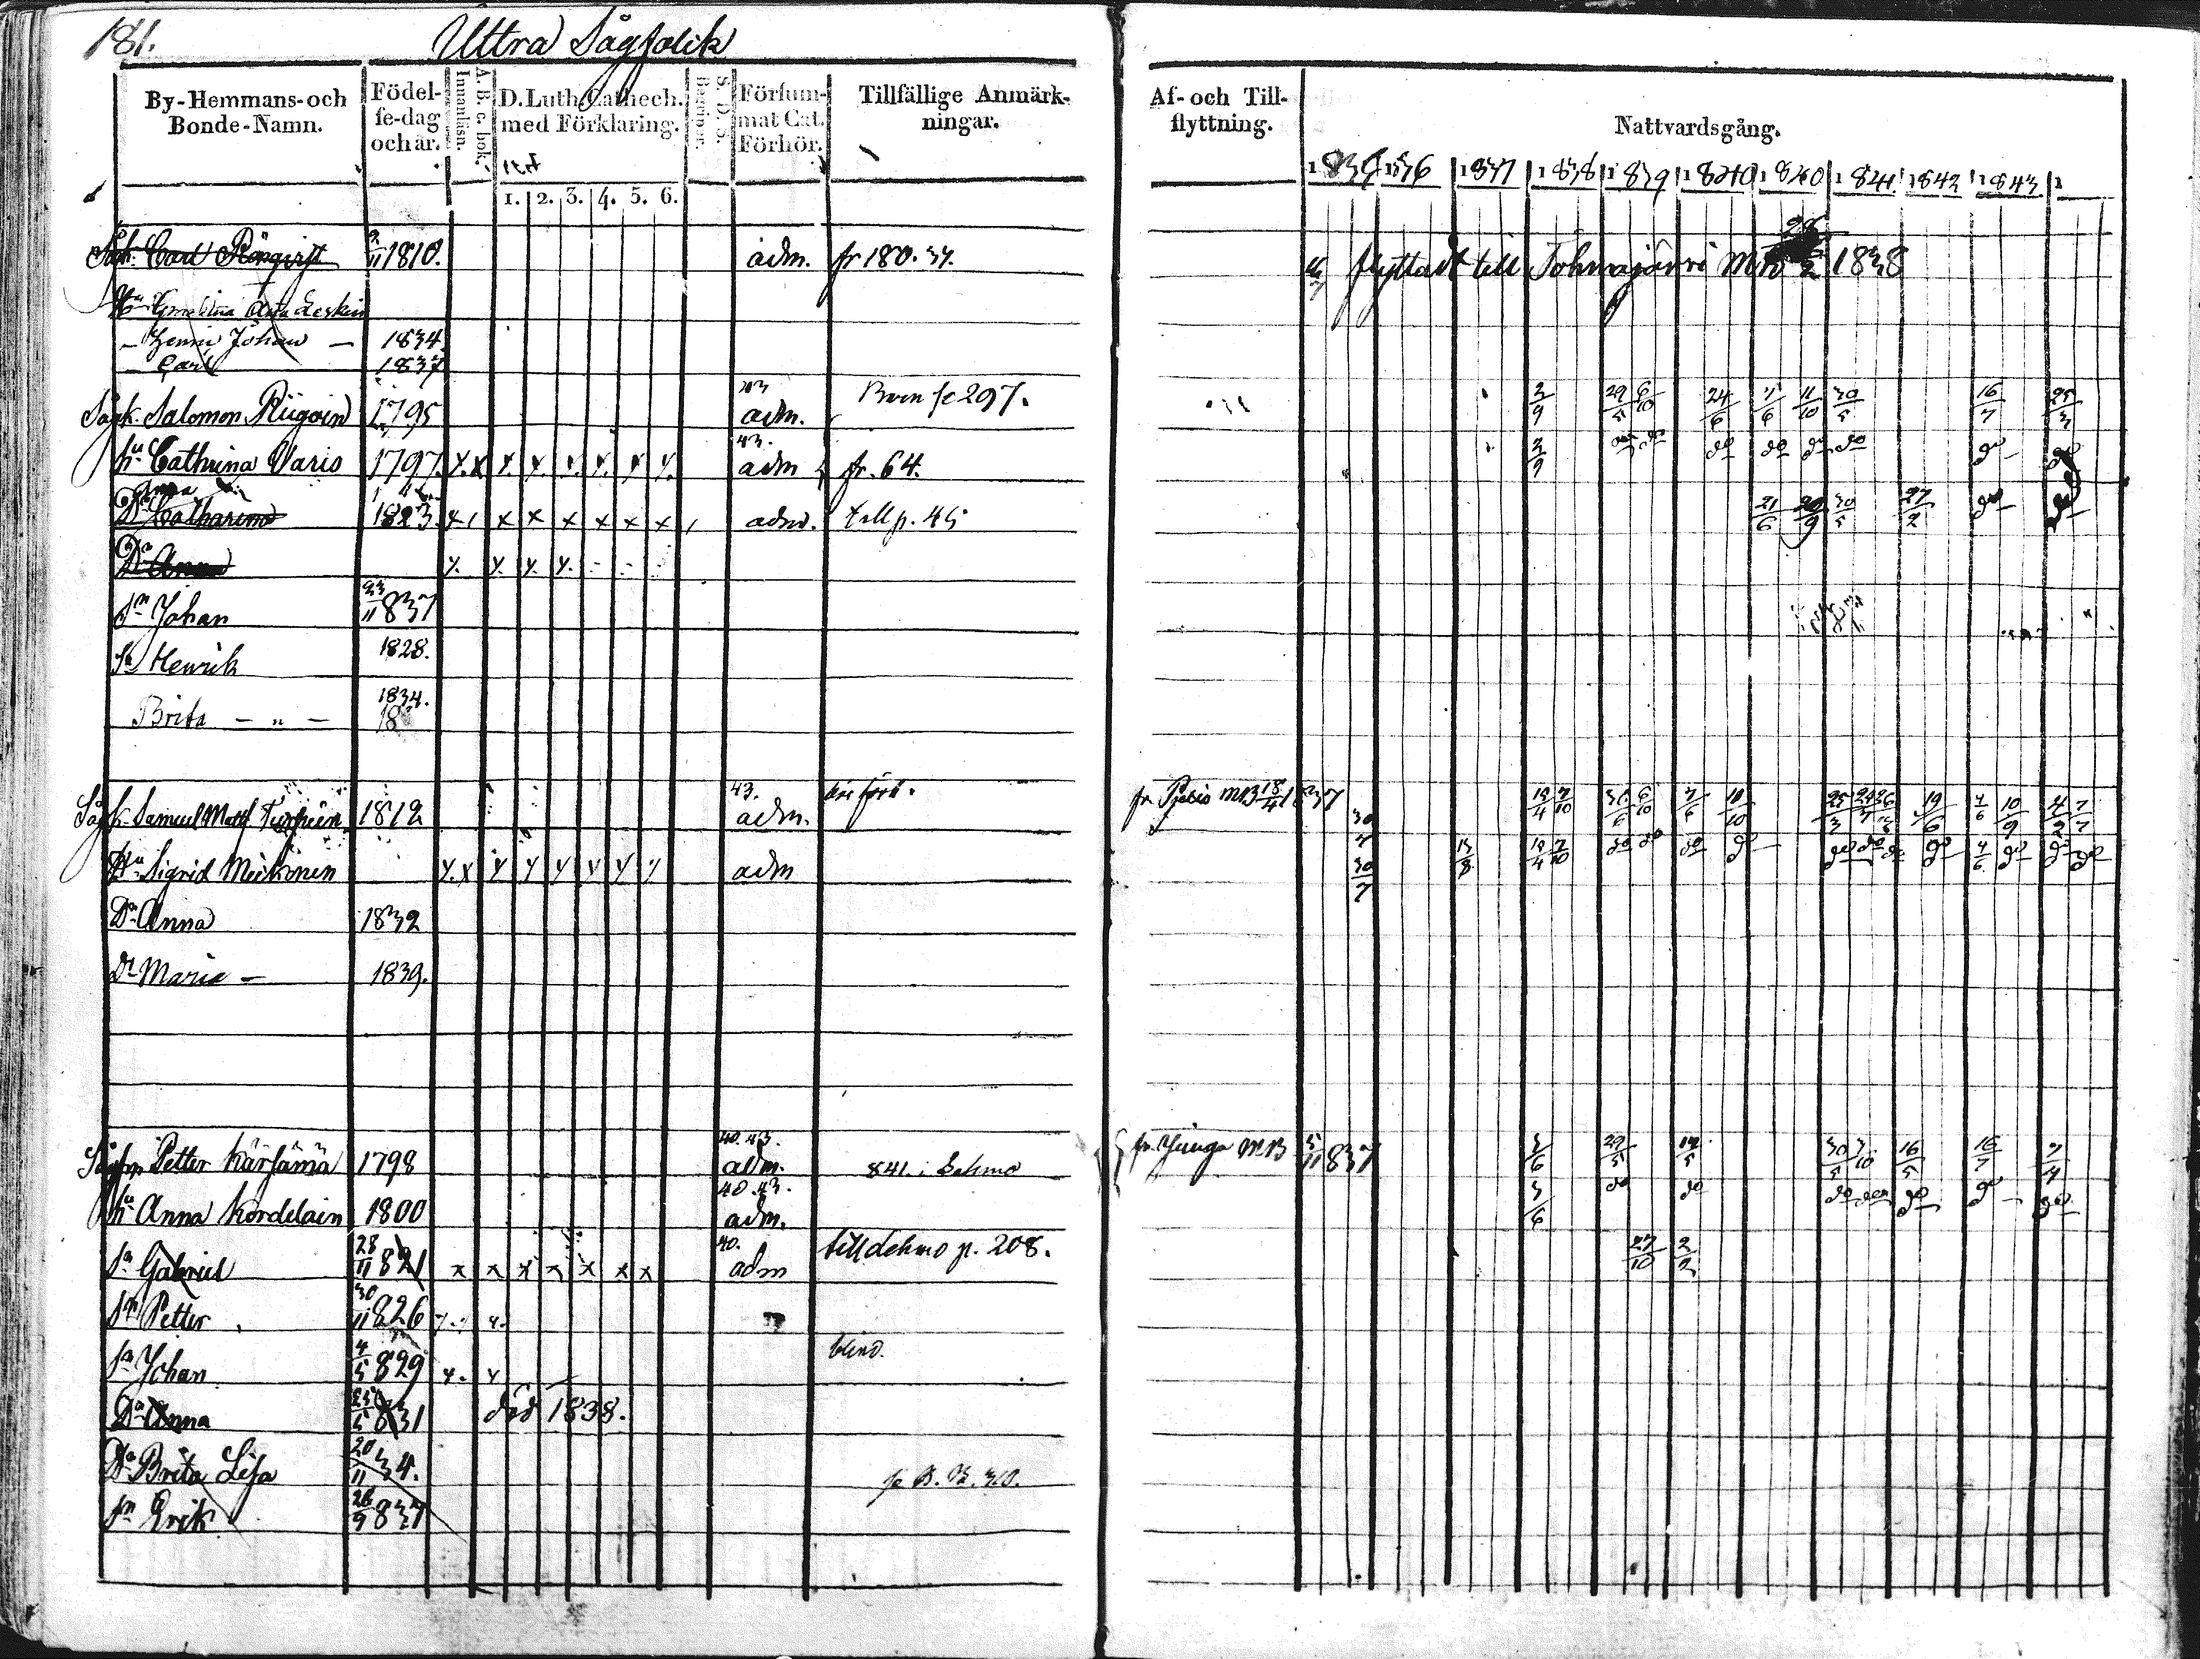 181. Uttra Sågfolk
By-Hemmans-och Bonde-Namn. Födel-se-dag och år. A.B.c. bok. Innanläsn. D. Luth. Cathech. med Förklaring. S. D. S. Begripet. Försum-mat Cat. Förhör. Tillfällige Anmärk-ningar. Af- och Till-flyttning. Nattvardsgång.
1. 2. 3. 4. 5. 6. 1836 1837 1838 1839 1840 1840 1841 1842 1843 1
Sågk. Carl Rönqvist 2/11 1810. adm. fr 180. 37. flyttadt till Tohmajärvi 1838
Henric Johan — 1834
— Carl 1837
Sågk. Salomon Riigoin 1795 43 adm. Barn se 297. 2/9 29/5 6/10 24/6 7/6 11/10 30/5 16/7 25/3
hu Cathrina Varis 1797. 43. adm fr. 64. 2/9 do do do do do do do do
Dr Catharina Anna 1823 x x x x x x adm. till p. 45 21/6 20/9 30/5 27/2 do do
Dr Anna
Sn Johan 23/11 837
Sn Henrik 1828.
Brita — " — 1834.
Sågk. Samuel Matts Turpein 1812 43. adm. 18/4 1837 30/7 15/4 7/10 6/10 7/6 11/10 19/6 4/6 10/9 4/2 7/7
Hu Sigrid Meikonen adm 30/7 15/8 15/4 7/10 do do do do do do do do 4/6 do do do
Dr Anna 1832
Dr Maria — 1839.
Sågkn Petter Kärsämä 1798 40. 43. adm. 841. i Lehmo fr. Ijunga MB 5/11 837 3/6 29/5 19/5 30/5 3/10 16/5 16/7 7/4
hu Anna Kordelain 1800 40. 43. adm. 3/6 do do do do do do do
Sn Gabriel 28/11 821 x x x x x x x 40. adm till Lehmo p. 208. 27/10 2/2
Sn Petter 30/11 826
Sn Johan 4/5 829 blind.
Dr Anna 25/5 831 död 1838.
Dr Brita Lisa 20/11 34.
Sn Erik 26/9 837